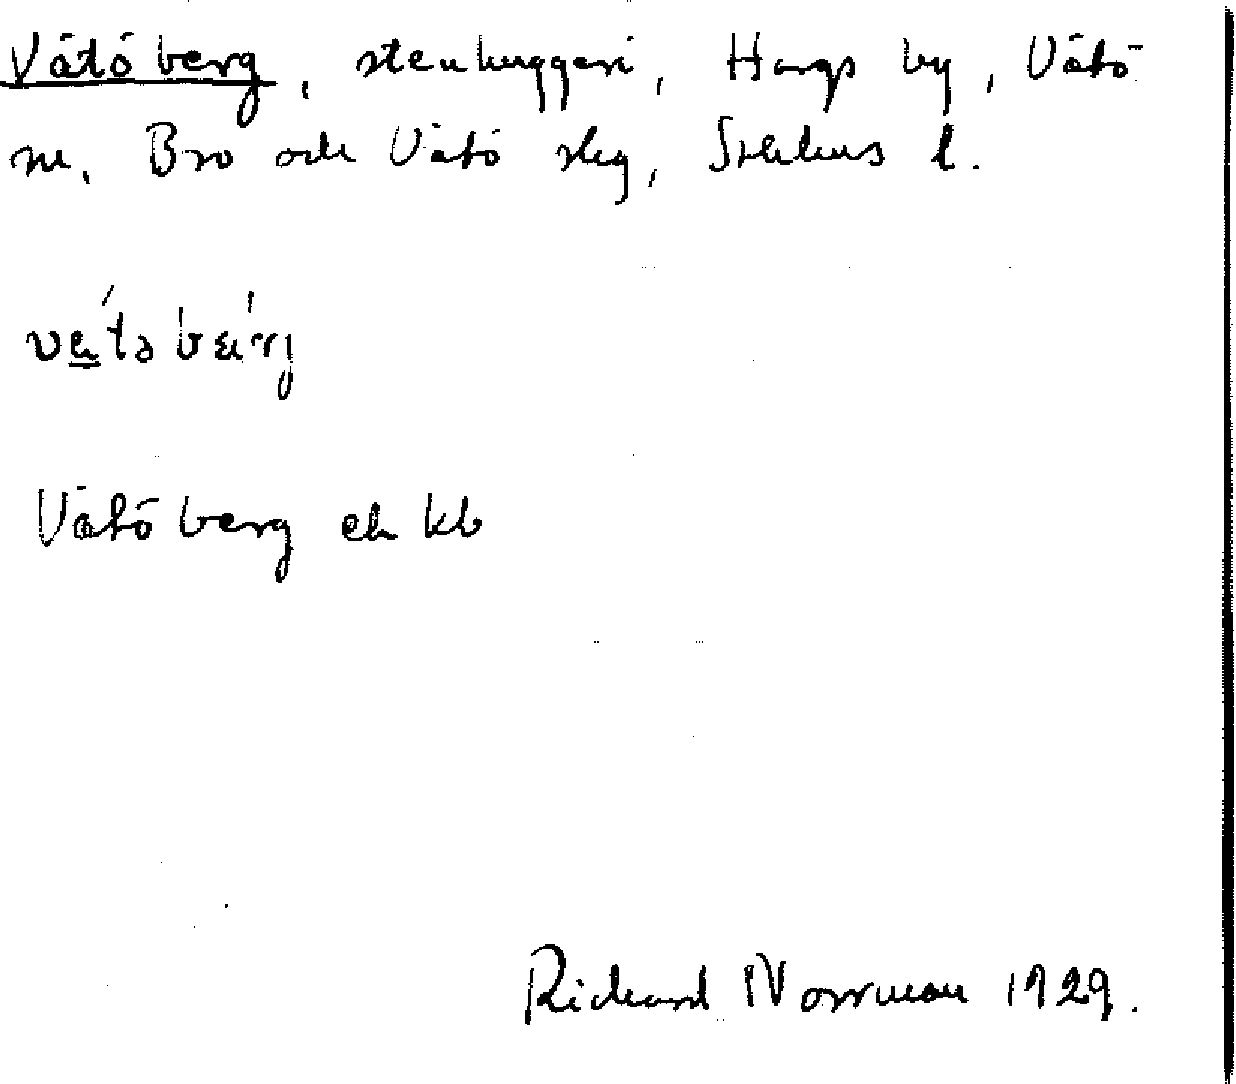 Vätö berg, stenhuggeri, Hargs by, Vätö
sn, Bro och Vätö skg, Sthlms l.
Vätö berg ek kb
Richard Norrman 1929.